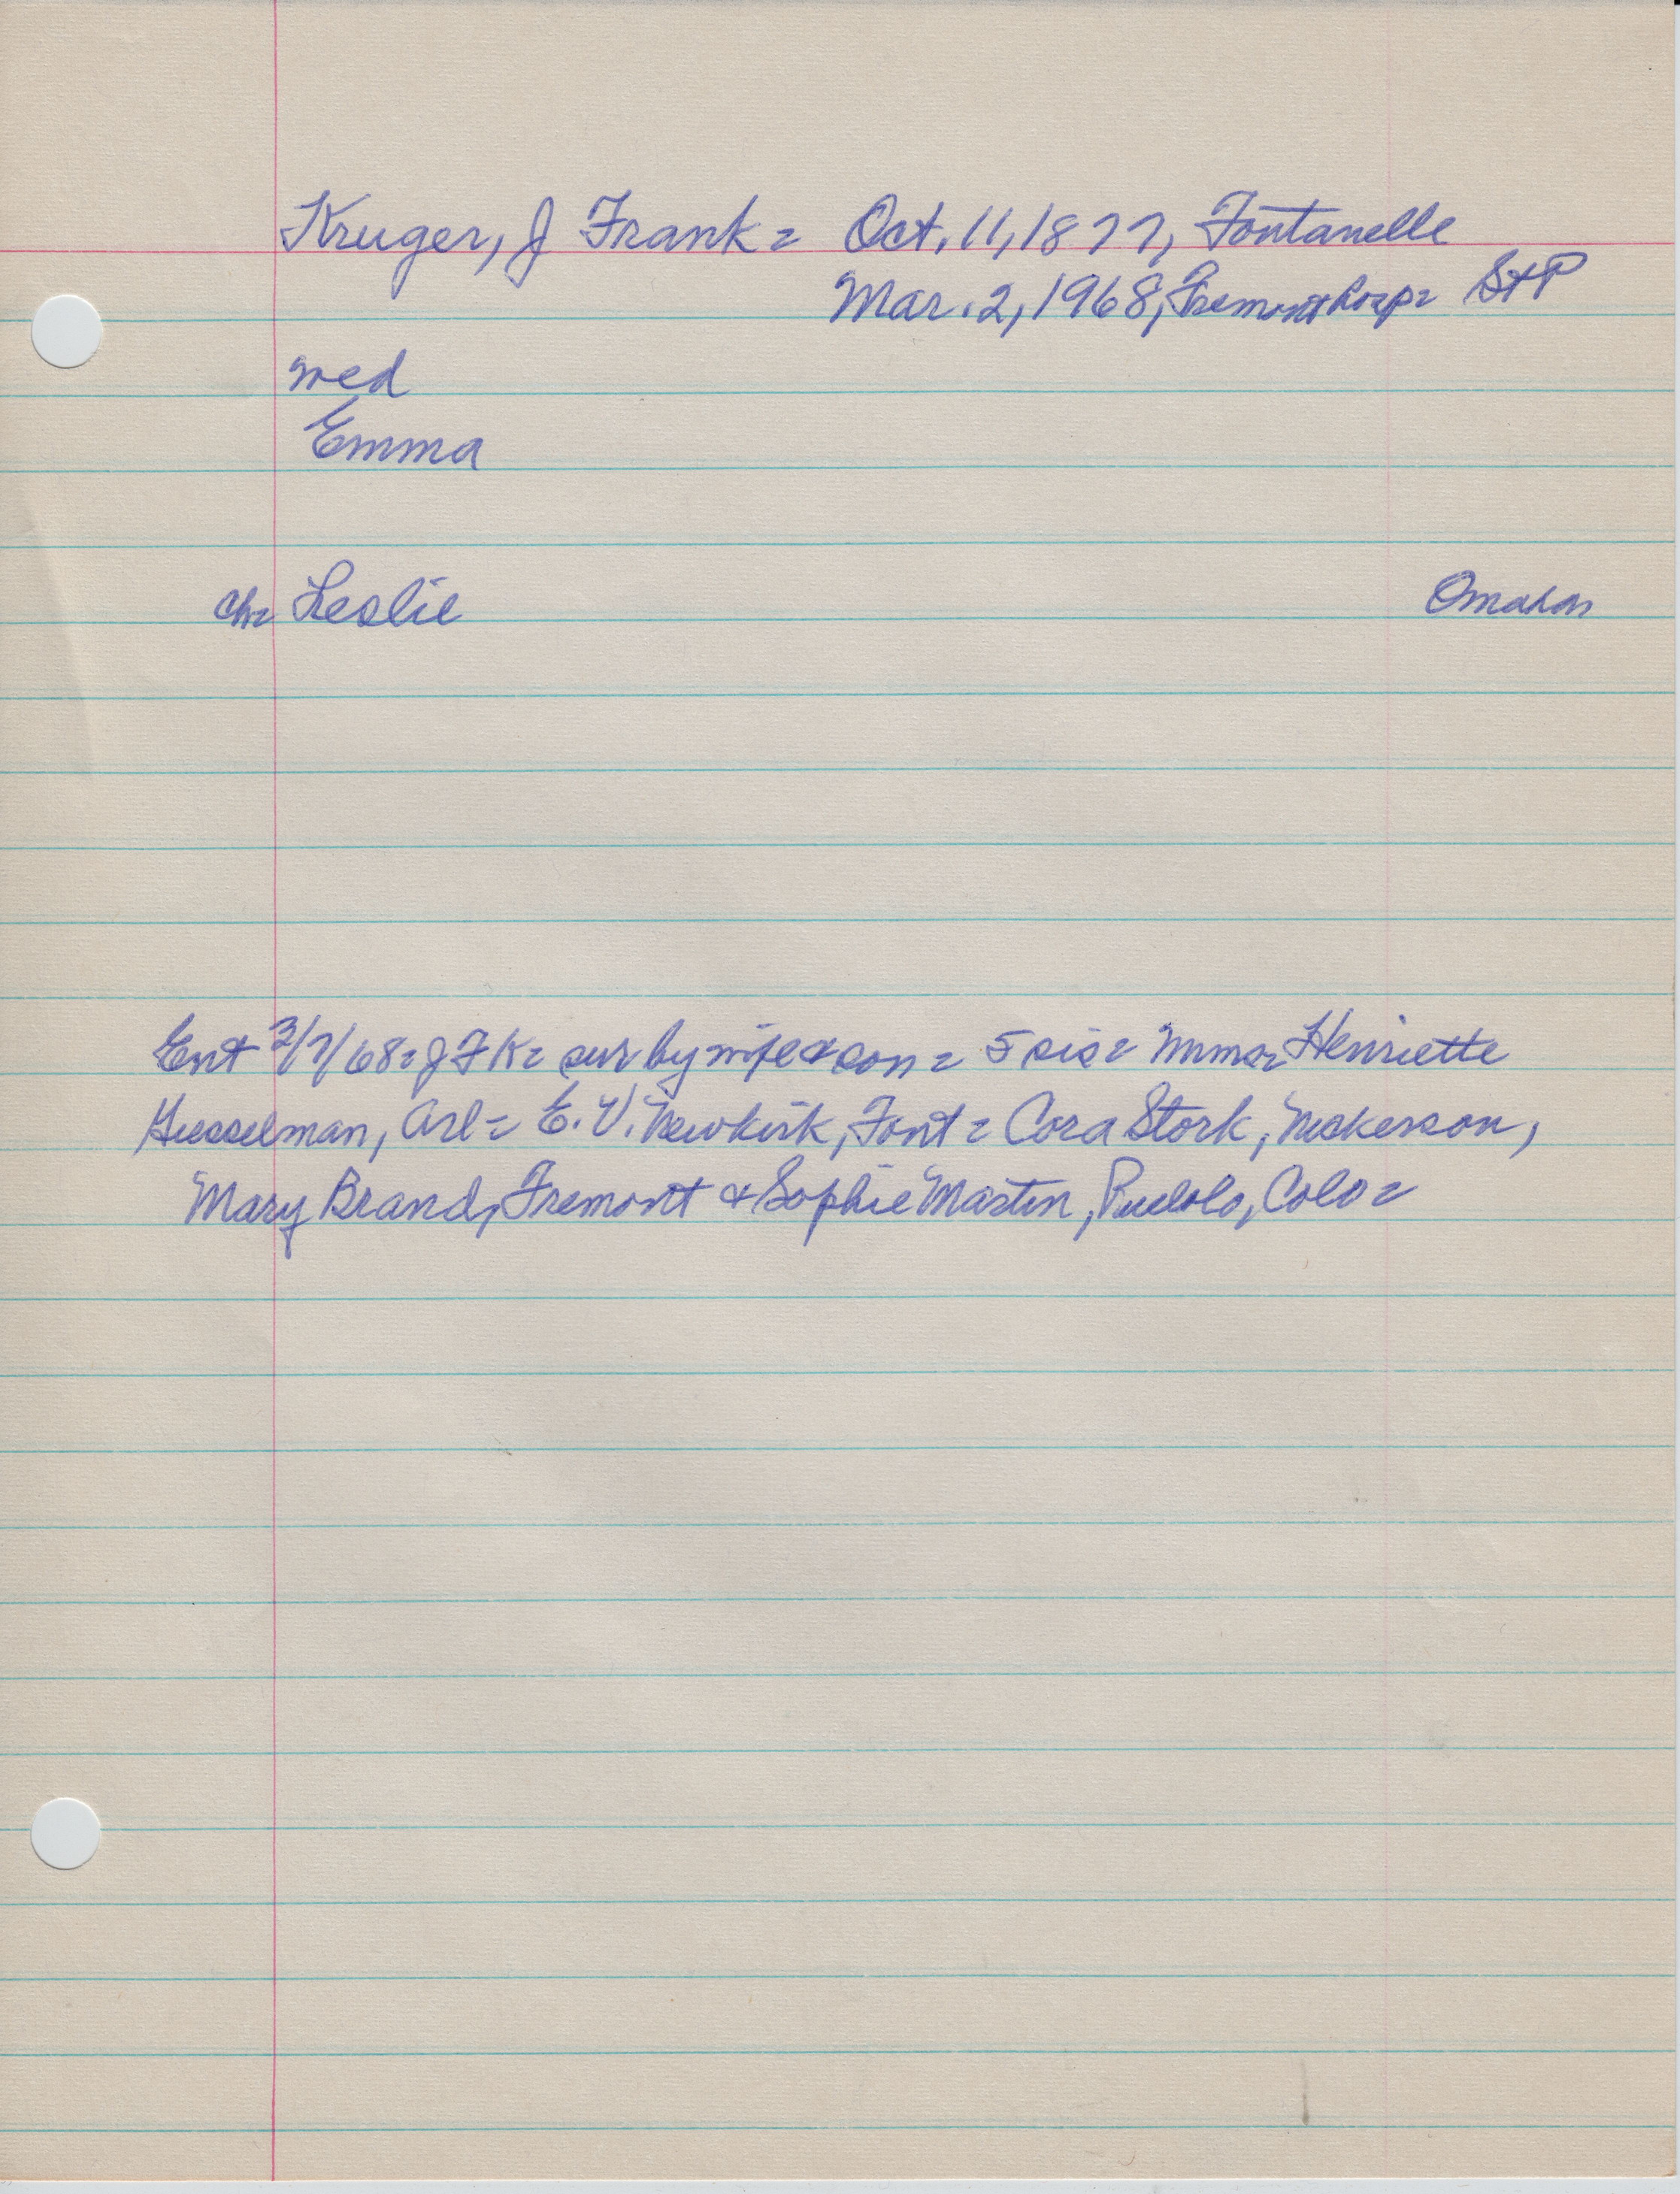 Kruger, J Frank = Oct. 11, 1877, Fontanelle
Mar. 2, 1968, Fremont hosp = St P
med
Emma
ch = Leslie Omaha
Ent 3/7/68 = J F K = sur by wife & son = 5 sis = Mmes Henriette
Husselman, Arl = E. V. Newkirk, Font = Cora Stork, Nickerson,
Mary Brand, Fremont & Sophie Martin, Pueblo, Colo =